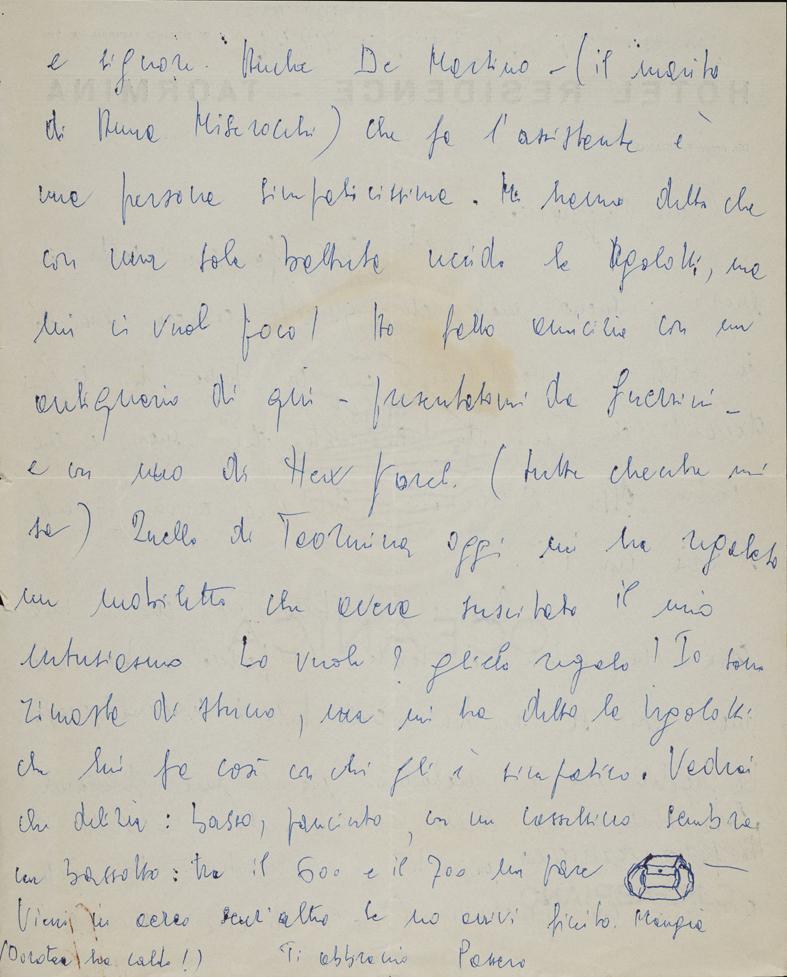 e signore. Anche De Martino - (il marito
di Anna Miserocchi) che fa l'assistente è
una persona simpaticissima. Mi hanno detto che
con una sola battuta uccide la Ugolotti, ma
lui ci vuol poco! Ho fatto amicizia con un
antiquario di qui - presentatomi da Guerrini -
e con uno di
(tutta che mi
sa) Quello di Taormina oggi mi ha regalato
un mobiletto che aveva suscitato il mio
entusiasmo Lo vuole? glielo regalo! Io sono
rimasta di stucco, ma mi ha detto la Ugolotti
che lui fa così con chi gli è simpatico. Vedrai
che delizia: basso, panciuto, con un cassettino sembra
un bassotto: tra il 600 e il 700 mi pare
Vieni in aereo senz'altro se no arrivi finito. Mangia
(Dorotea ha caldo!) Ti abbraccio Passero
HOTEL RESIDENCE - TAORMINA